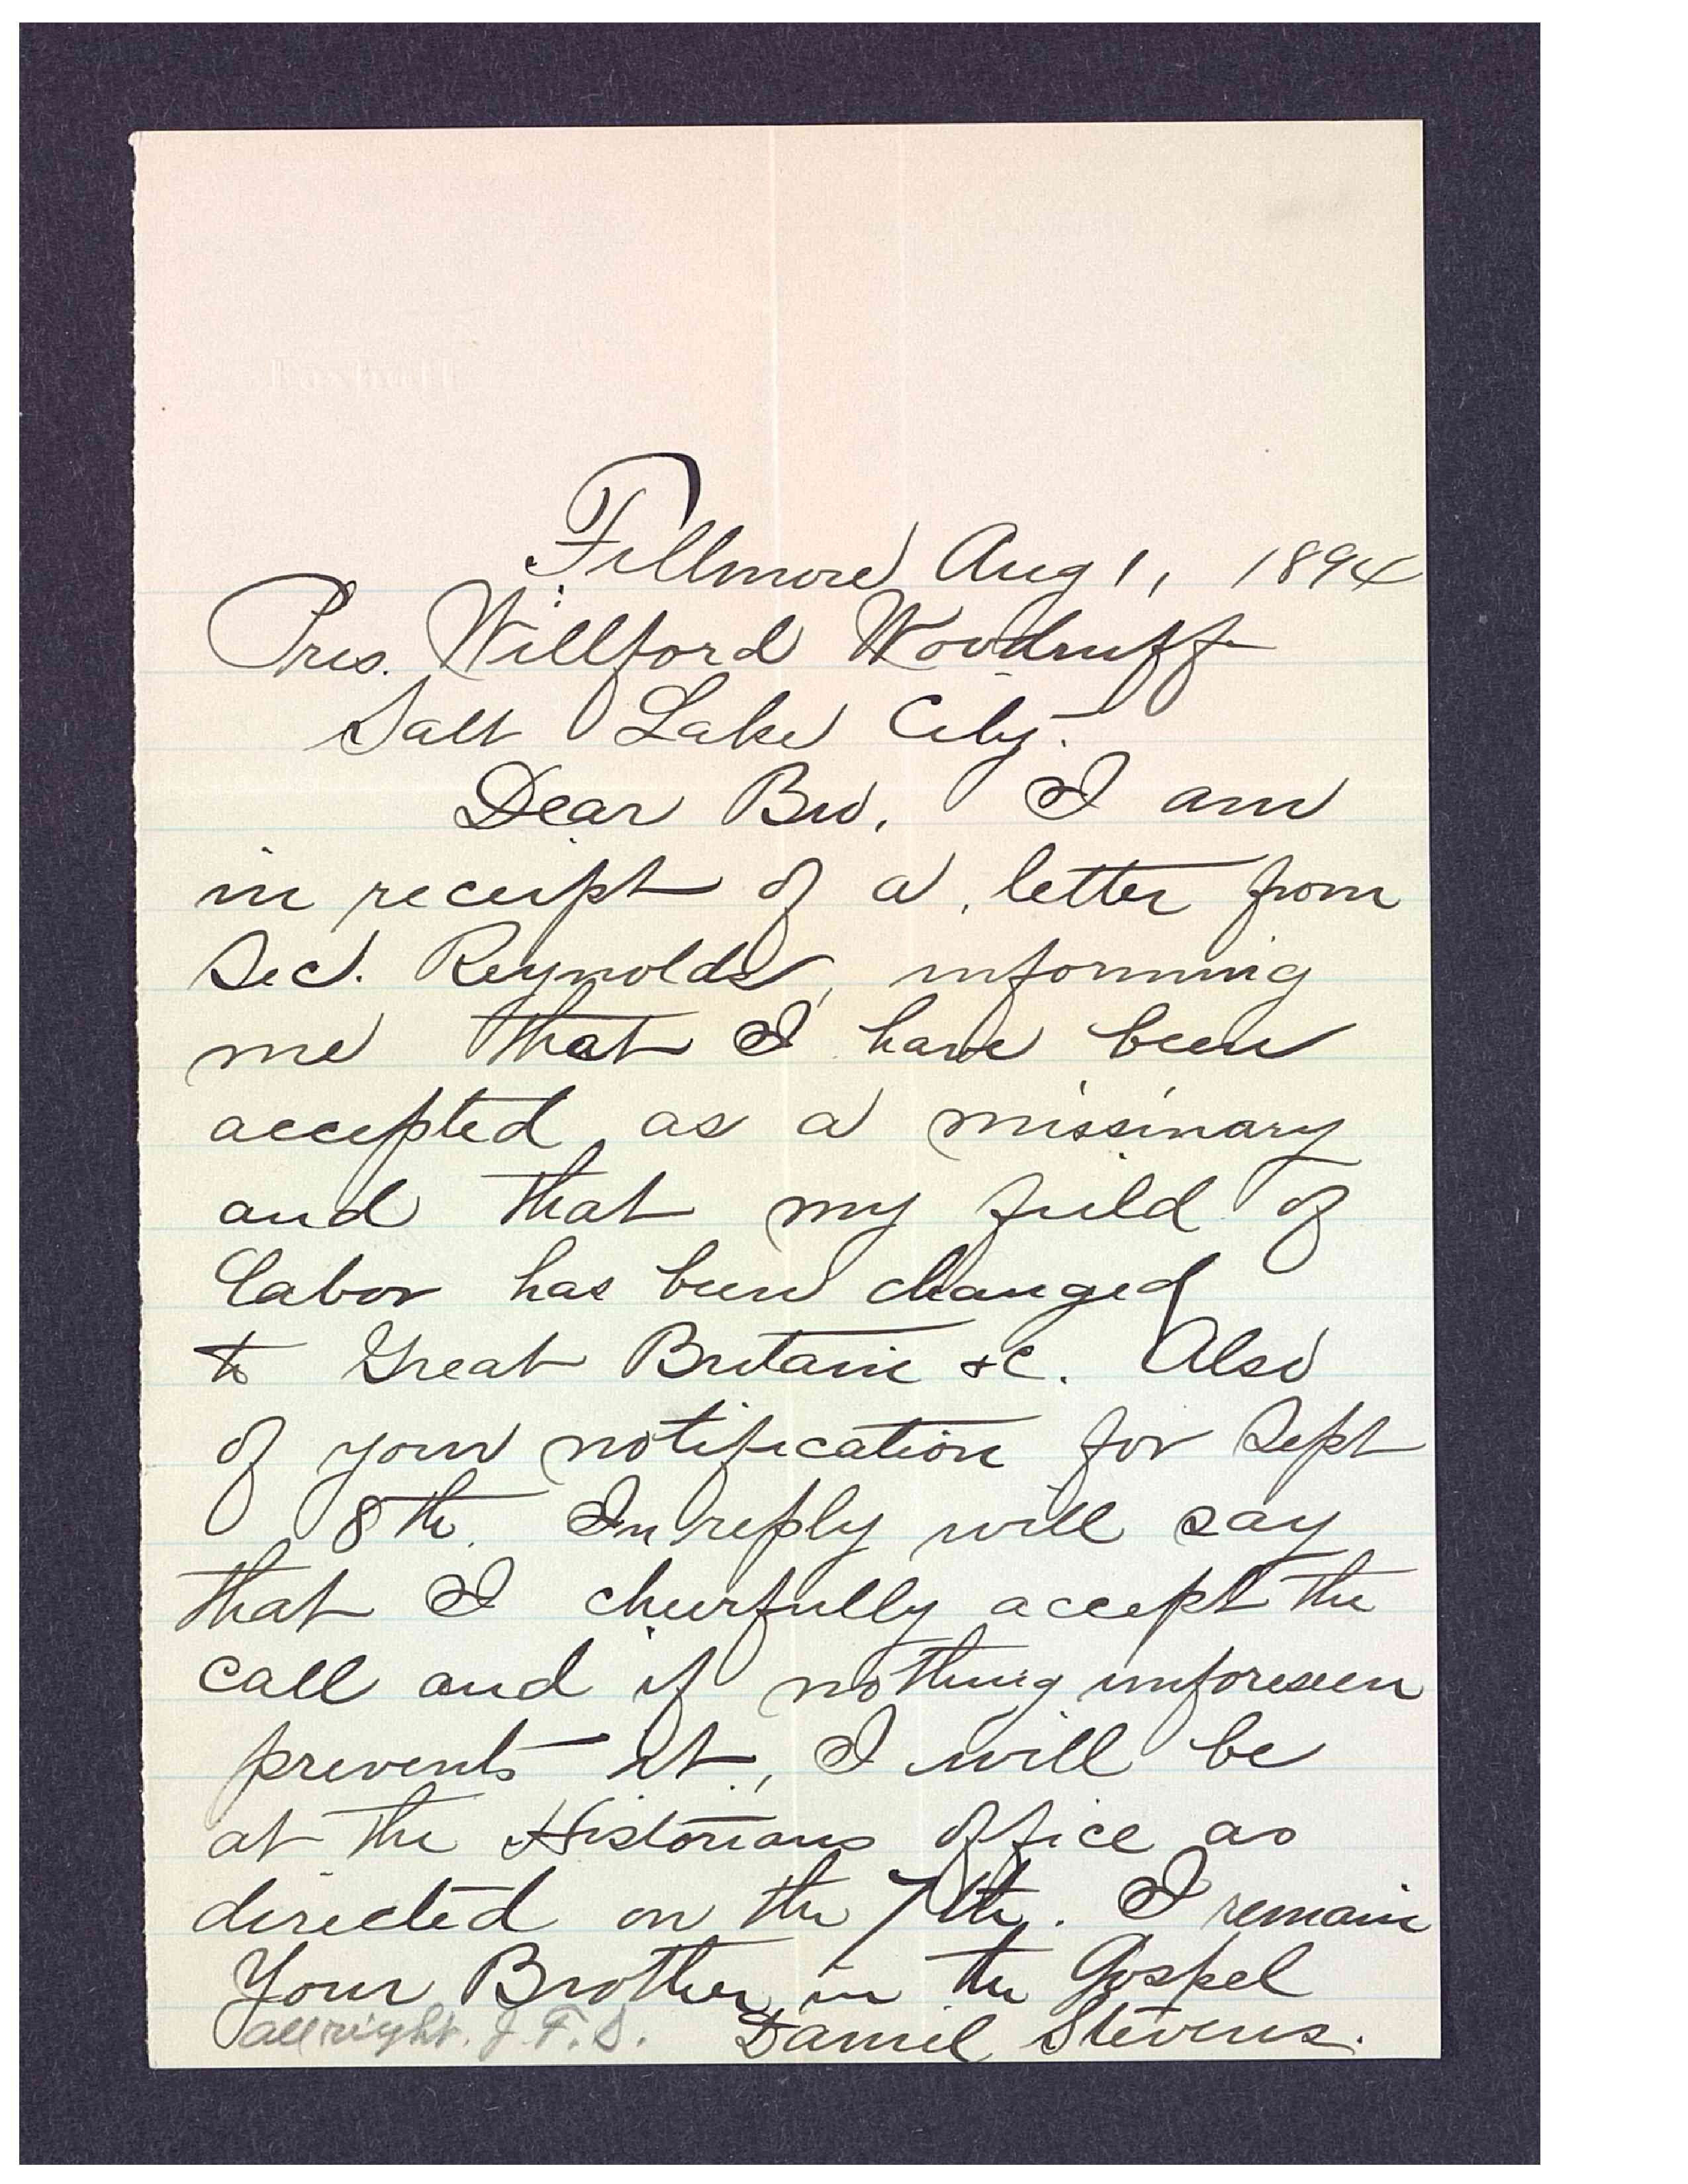 Fillmore Aug 1, 1894
Pres. Willford Woodruff
Salt Lake City.
Dear Bro. I am
in receipt of a letter from
Sec. Reynolds, informing
me that I have been
accepted as a missinary
and that my field of
labor has been changed
to Great Britain &c. Also
of your notification for Sept
8th. In reply will say
that I cheerfully accept the
call and if nothing unforeseen
prevents it, I will be
at the Historians office as
directed on the 7th. I remain
Your Brother in the Gospel
Daniel Stevens.
all right. J. F. S.